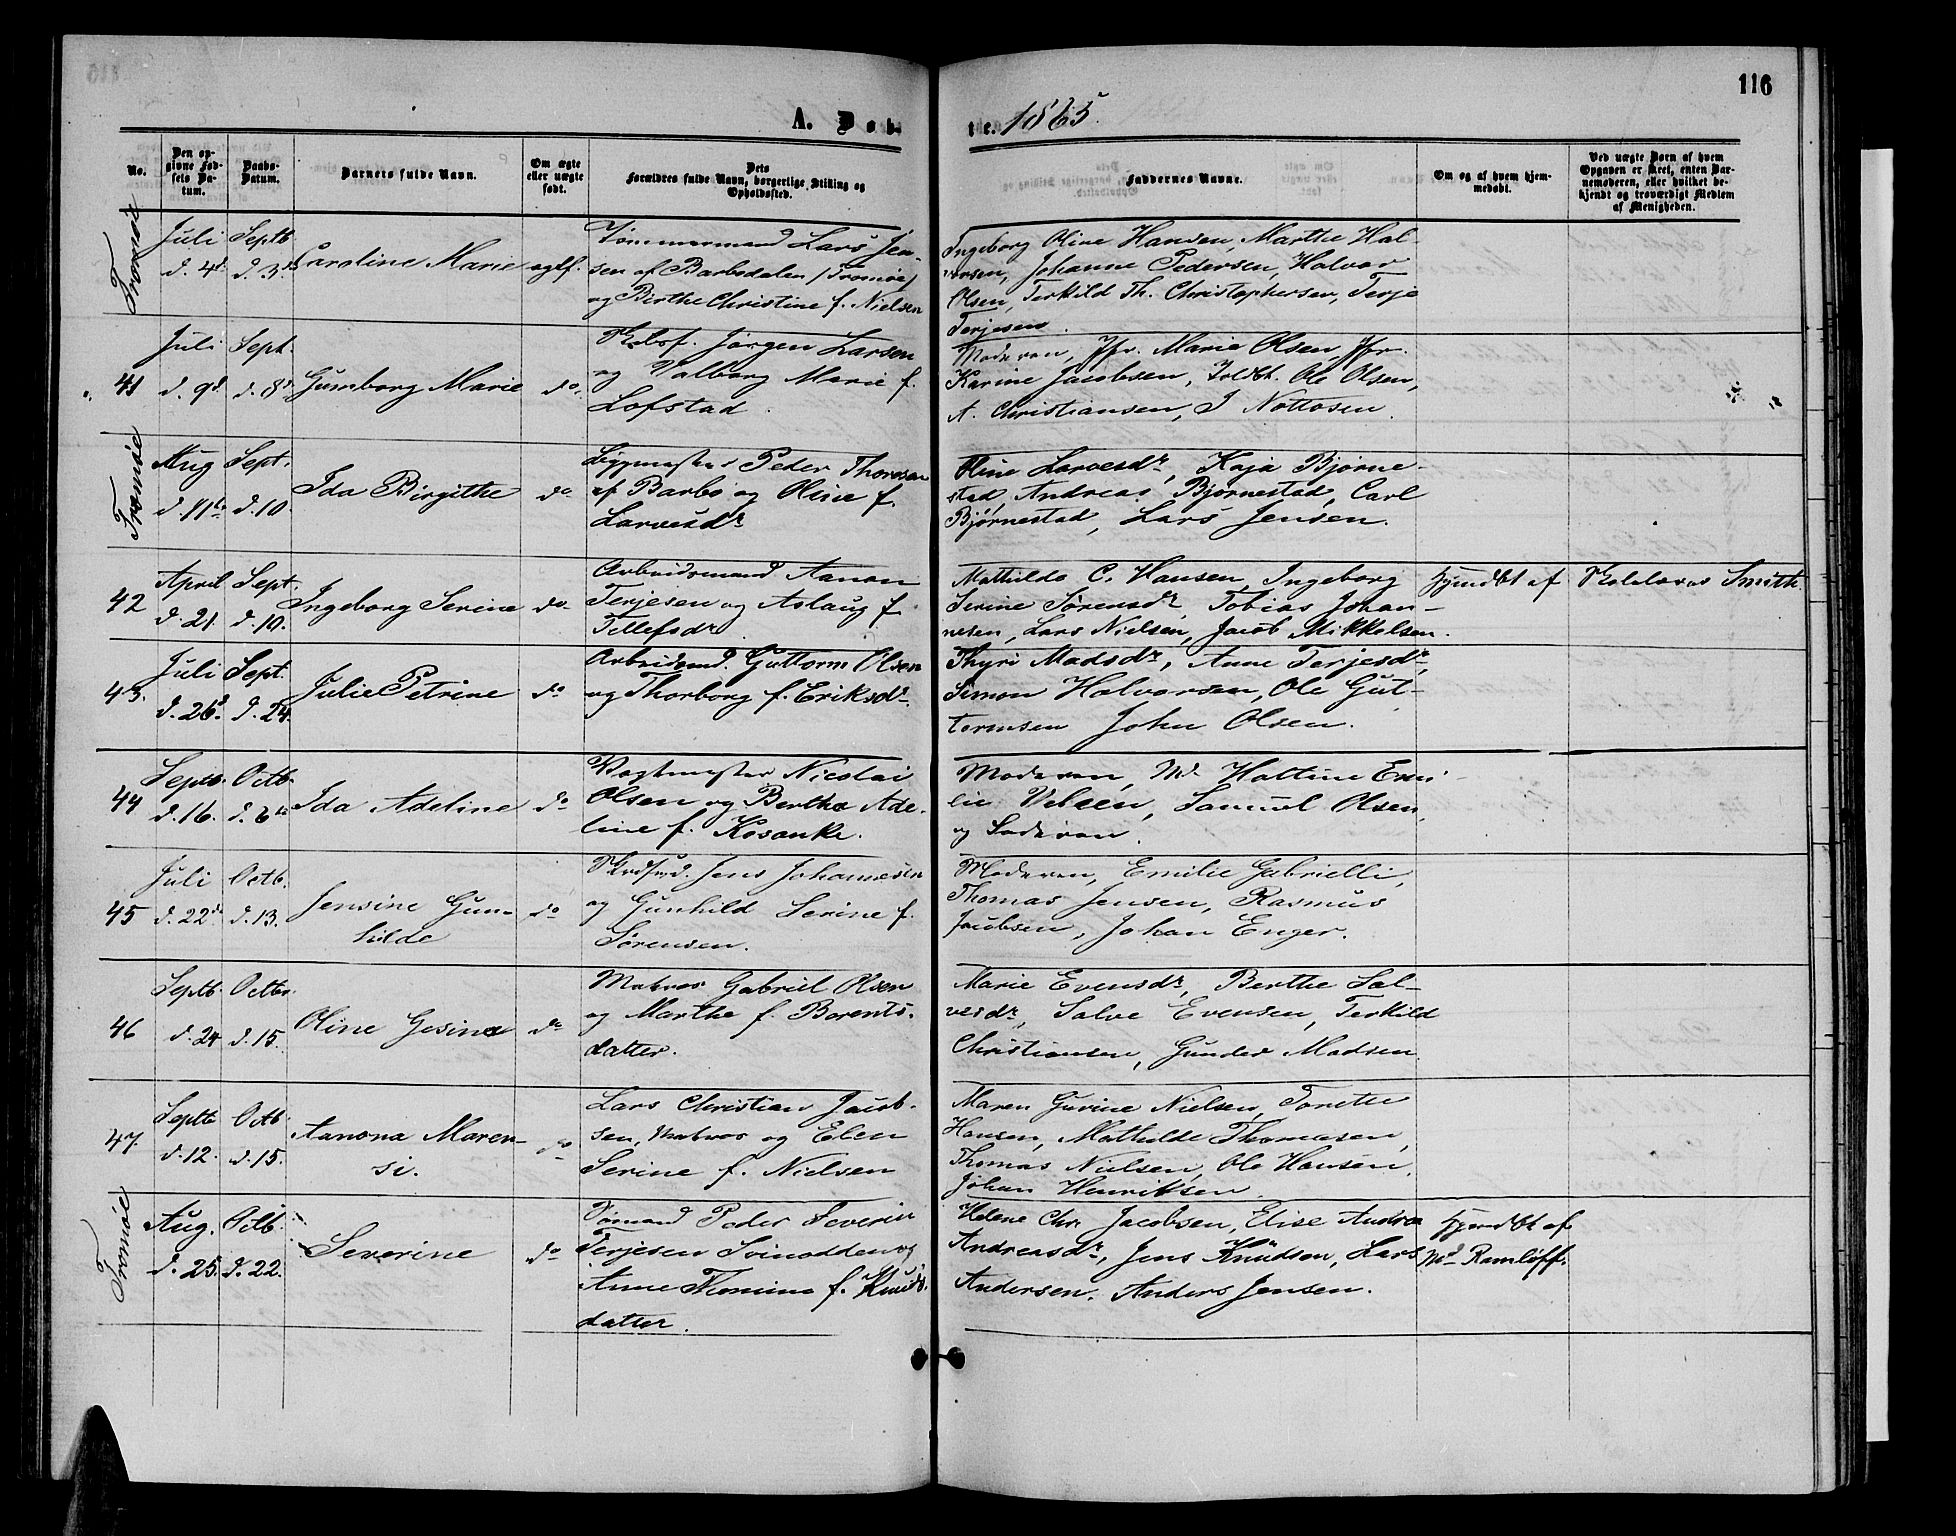 116
A. Døb- te. 1865.
No.
Den op-
givne Fød-
sels Da-
tum.
Daabs-
Datum.
Barnets fulde Navn.
Om ægte
eller uægte
født.
Dets
Forældres fulde Navn, borgerlige Stilling og
Opholdssted.
Faddernes Navne.
Om og af hvem hjem-
medøbt.
Ved uægte Børn af hvem
Opgaven er skeet, enten Bar-
nemoderen, eller hvilket be-
kjendt og troværdigt Medlem
af Menigheden.
Tromøe
Juli
d. 4de
Septb.
d. 3d
Caroline Marie
ægtf.
Tømmermand Lars Jen-
sen af Barbodalen /Tromøe/
og Birthe Christine f. Nielsen
Ingeborg Oline Hansen, Marthe Hal-
vorsen, Johanne Pedersen, Halvor
Olsen, Terkild Th. Christophersen, Terje
Terjesen.
41
Juli
d. 9d.
Sept.
d. 8d.
Gumborg Marie
do.
Jørgen Larsen
og Valborg Marie f.
Lofstad.
Moderen, Jfr. Marie Olsen, Jfr.
Karine Jacobsen, Toldbt. Ole Olsen,
A. Christiansen, J Nottosen.
Tromøe
Aug
d. 11te
Sept.
d. 10
Ida Birgithe
do
Peder Thoresen
af Barbo og Oline f.
Larvesdr
Oline Larvesdr, Kaja Bjørne-
stad, Andreas Bjørnestad, Carl
Bjørnestad, Lars Jensen.
42
April
d. 21.
Sept.
d. 10.
Ingeborg Serine
do
Arbeidsmand Aanon
Terjesen og Aslaug f.
Tellefsdr.
Mathilde C. Hansen, Ingeborg
Serine Sørensdr, Tobias Johan-
nesen, Lars Nielsen, Jacob Mikkelsen.
hjemdbt af
Smith.
43.
Juli
d. 26d.
Sept.
d. 24.
Julie Petrine
do
Arbeidsmd. Guttorm Olsen
og Thorborg f. Eriksdr.
Thyri Madsdr, Anne Terjesdr,
Simon Halvorsen, Ole Gut-
tormsen John Olsen.
44
Septb.
d. 16.
Octb.
d. 6te
Ida Adeline
do
Vagtmester Nicolai
Olsen og Bertha Ade-
line f. Kosanke.
Moderen, Md. Hattine Emi-
lie Velsen, Samuel Olsen,
og Faderen.
45
Juli
d. 22d.
Octb.
d. 13.
Jensine Gun-
hilde
do
Jens Johannesen
og Gunhild Serine f.
Sørensen.
Moderen, Emilie Gabrielli,
Thomas Jensen, Rasmus
Jacobsen, Johan Enger.
46
Septb.
d. 24
Octbr.
d. 15.
Oline Gesine
do
Matros Gabriel Olsen
og Marthe f. Berents-
datter.
Marie Evensdr, Berthe Sal-
vesdr, Salve Evensen, Terkild
Christiansen, Gunder Madsen.
47.
Septb
d. 12.
Octb
d. 15.
Aanona Maren-
si.
do
Lars Christian Jacob-
sen, Matros og Elen
Serine f. Nielsen
Maren Gurine Nielsen, Torette
Hansen, Mathilde Thomasen,
Thomas Nielsen, Ole Hansen,
Johan Henriksen.
Tromøe
Aug.
d. 25.
Octb.
d. 22.
Severine
do
Sømand Peder Severin
Terjesen Svinodden og
Anne Thomine f. Knuds-
datter.
Helene Chr. Jacobsen, Elise Andrea
Andreasdr, Jens Knudsen, Lars
Andersen, Anders Jensen.
hjemdbt af
Md Ramløff.